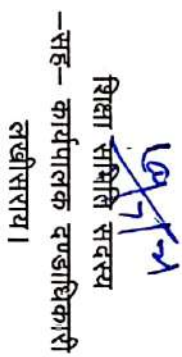 शिक्षा समिति सदस्य
–सह– कार्यपालक दण्डाधिकारी
लखीसराय।